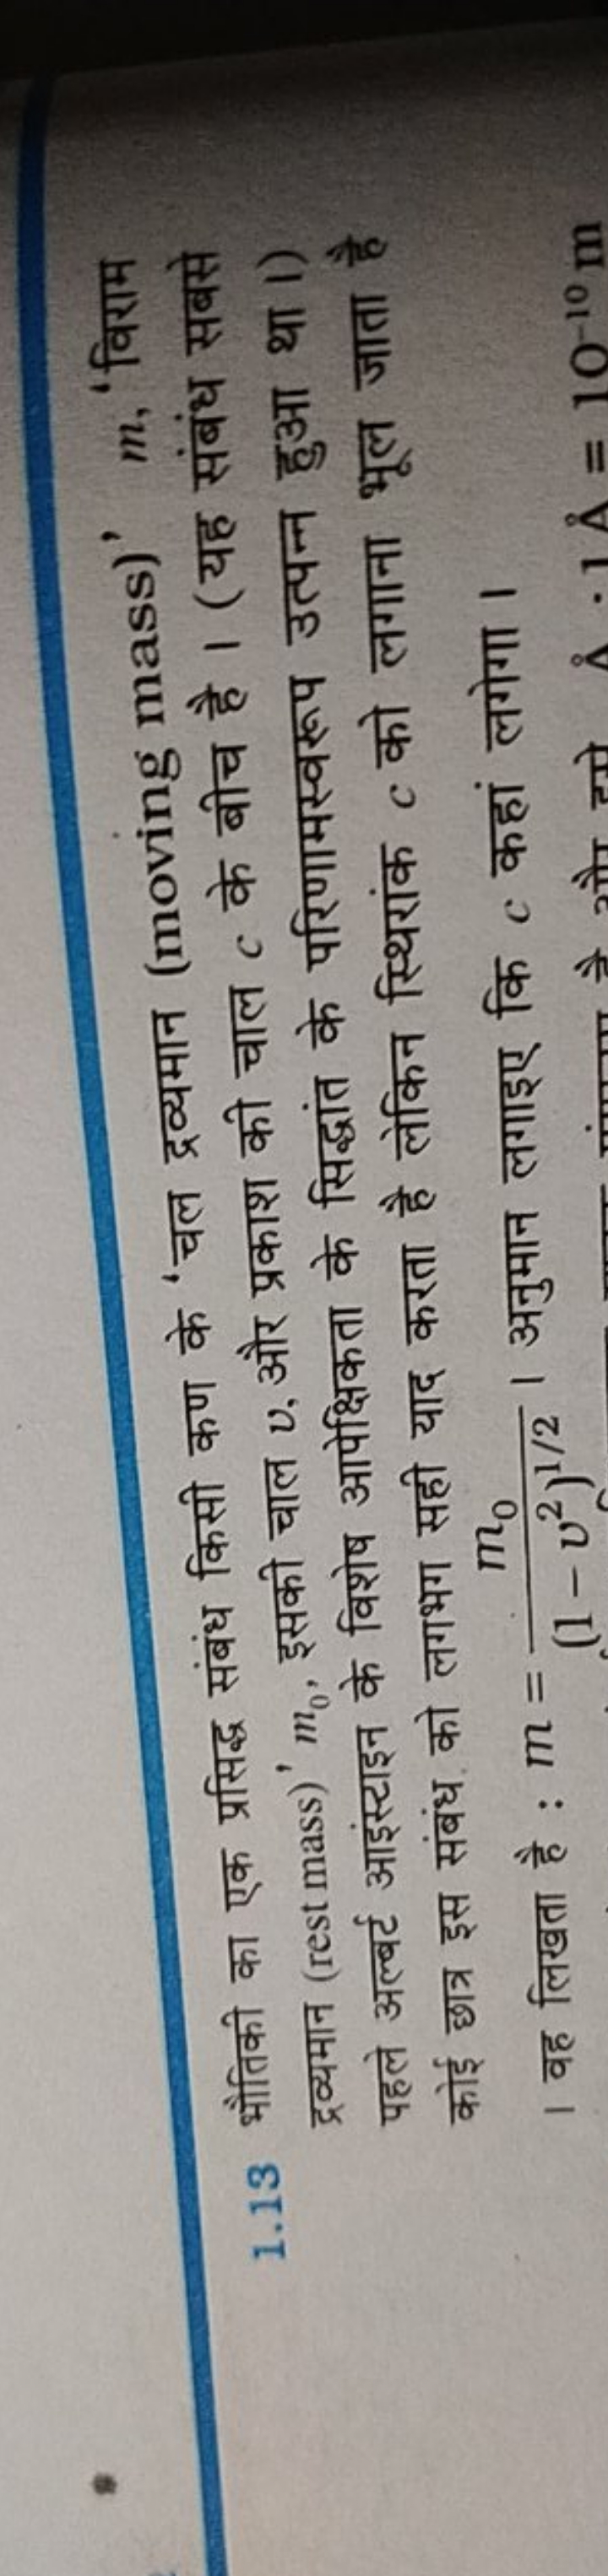 1.13 भौतिकी का एक प्रसिद्ध संबंध किसी कण के 'चल द्रव्यमान (moving mass)' m, 'विराम
द्रव्यमान (rest mass)' m₀, इसकी चाल υ, और प्रकाश की चाल c के बीच है । (यह संबंध सबसे
पहले अल्बर्ट आइंस्टाइन के विशेष आपेक्षिकता के सिद्धांत के परिणामस्वरूप उत्पन्न हुआ था ।)
कोई छात्र इस संबंध को लगभग सही याद करता है लेकिन स्थिरांक c को लगाना भूल जाता है
। वह लिखता है : m = m₀ / (1 – υ²)^1/2 । अनुमान लगाइए कि c कहां लगेगा ।
है और इसे Å : 1 Å = 10⁻¹⁰ m